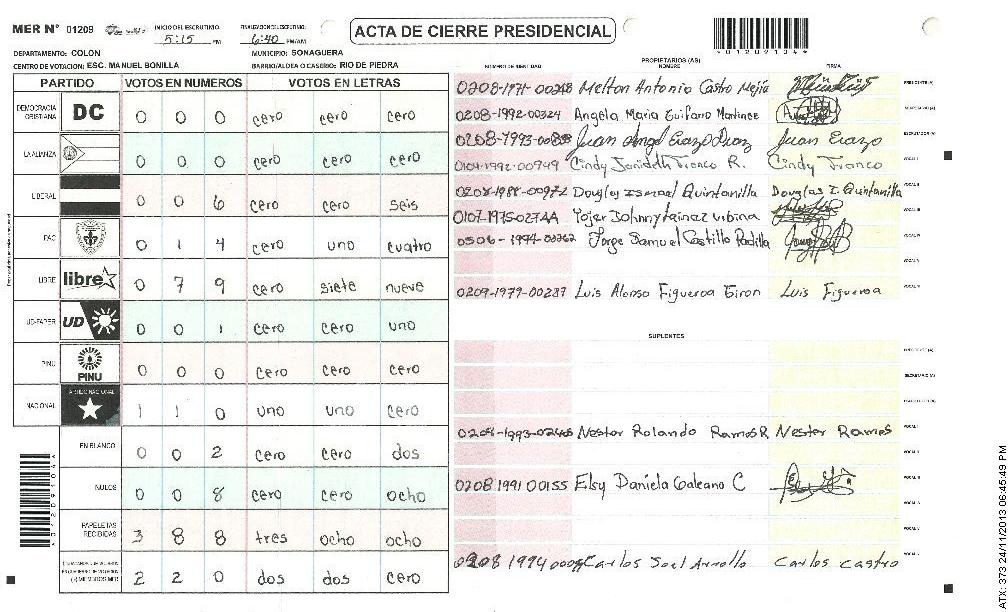 MER N° 01209
INICIO DEL ESCRUTINIO: 5:15 PM
FINALIZACION ESCRUTINIO: 6:40 PM/AM
ACTA DE CIERRE PRESIDENCIAL
DEPARTAMENTO: COLON MUNICIPIO: SONAGUERA
CENTRO DE VOTACION: ESC. MANUEL BONILLA BARRIO/ALDEA O CASERIO: RIO DE PIEDRA
PARTIDO VOTOS EN NUMEROS VOTOS EN LETRAS
DEMOCRACIA CRISTIANA DC 0 0 0 cero cero cero
LA ALIANZA 0 0 0 cero cero cero
LIBERAL 0 0 6 cero cero seis
FAC 0 1 4 cero uno cuatro
LIBRE libre 0 7 9 cero siete nueve
UD-FAPER UD 0 0 1 cero cero uno
PINU PINU 0 0 0 cero cero cero
NACIONAL 1 1 0 uno uno cero
EN BLANCO 0 0 2 cero cero dos
NULOS 0 0 8 cero cero ocho
PAPELETAS RECIBIDAS 3 8 8 tres ocho ocho
2 2 0 dos dos cero
PROPIETARIOS (AS)
NUMERO DE IDENTIDAD NOMBRE FIRMA
Melton Antonio Castro Mejía
0208-1992-00324 Angela Maria Guifarro Martinez
Juan Angel Erazo Diaz Juan Erazo
0104-1992-00749 Cindy Janideth Franco R. Cindy Franco
0208-1988-00972 Douglas Ismael Quintanilla Douglas I. Quintanilla
Jorge Samuel Castillo Padilla
0209-1979-00287 Luis Alonso Figueroa Giron Luis Figueroa
SUPLENTES
Nestor Rolando Ramos R Nestor Ramos
0208 1991 00155 Elsy Daniela Galeano C
Carlos Carlos Castro
4012091044
ATX: 373 24/11/2013 06:45:49 PM